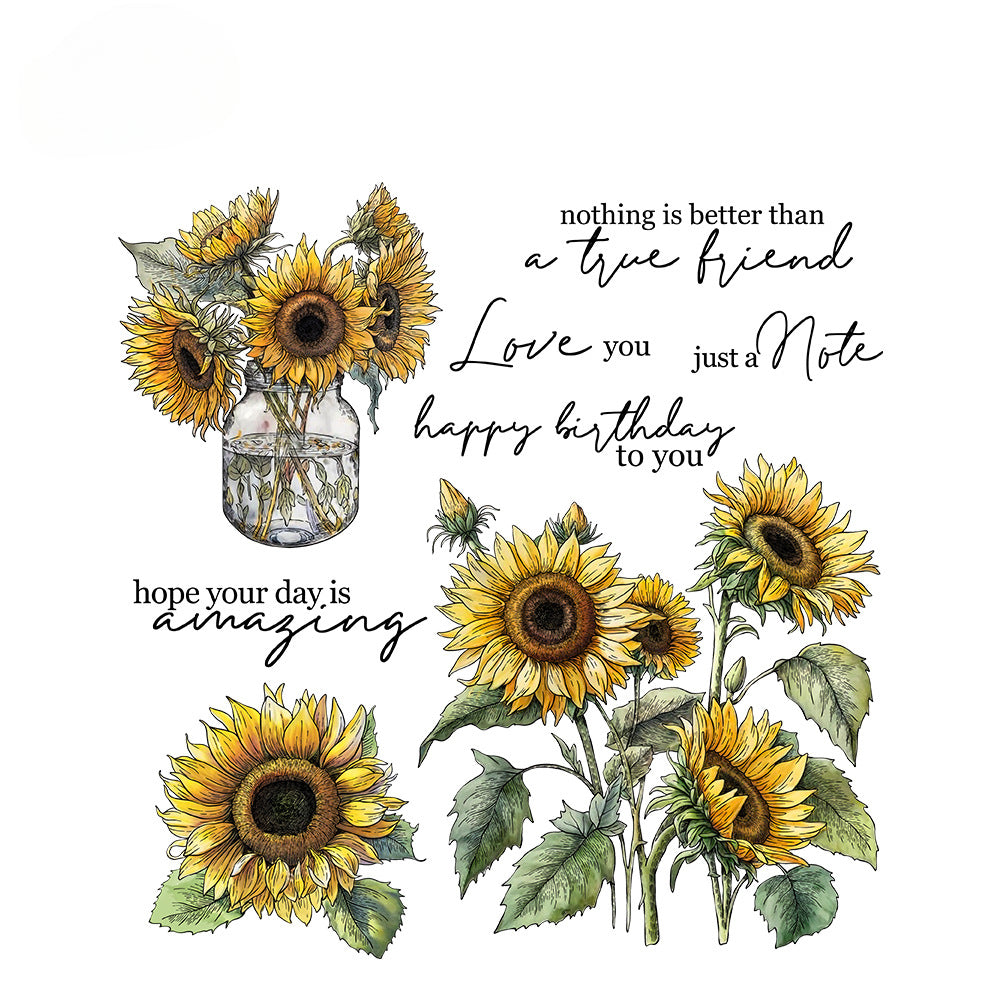 nothing is better than
a true friend
Love you
just a Note
happy birthday
to you
hope your day is
amazing